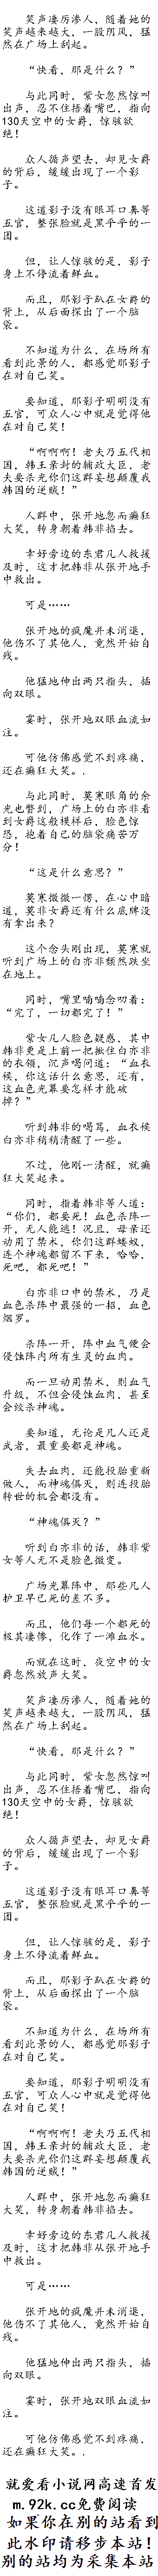 笑声凄厉渗人，随着她的
笑声越来越大，一股阴风，猛
然在广场上刮起。
“快看，那是什么？”
与此同时，紫女忽然惊叫
出声，忍不住捂着嘴巴，指向
130天空中的女爵，惊骇欲
绝！
众人循声望去，却见女爵
的背后，缓缓出现了一个影
子。
这道影子没有眼耳口鼻等
五官，整张脸就是黑乎乎的一
团。
但，让人惊骇的是，影子
身上不停流着鲜血。
而且，那影子趴在女爵的
背上，从后面探出了一个脑
袋。
不知道为什么，在场所有
看到此景的人，都感觉那影子
在对自己笑。
要知道，那影子明明没有
五官，可众人心中就是觉得他
在对自己笑！
“啊啊啊！老夫乃五代相
国，韩王亲封的辅政大臣，老
夫要杀光你们这群妄想颠覆我
韩国的逆贼！”
人群中，张开地忽而癫狂
大笑，转身朝着韩非掐去。
幸好旁边的东君几人救援
及时，这才把韩非从张开地手
中救出。
可是……
张开地的疯魔并未消退，
他伤不了其他人，竟然开始自
残。
他猛地伸出两只指头，插
向双眼。
霎时，张开地双眼血流如
注。
可他仿佛感觉不到疼痛，
还在癫狂大笑。.
与此同时，莫寒眼角的余
光也瞥到，广场上的白亦非看
到女爵这般模样后，脸色惊
恐，抱着自己的脑袋痛苦万
分！
“这是什么意思？”
莫寒微微一愣，在心中暗
道，莫非女爵还有什么底牌没
有拿出来？
这个念头刚出现，莫寒就
听到广场上的白亦非颓然跌坐
在地上。
同时，嘴里喃喃念叨着：
“完了，一切都完了！”
紫女几人脸色疑惑，其中
韩非更是上前一把揪住白亦非
的衣领，沉声喝问道：“血衣
候，你这话什么意思，还有，
这血色光幕要怎样才能破
掉？”
听到韩非的喝骂，血衣候
白亦非稍稍清醒了一些。
不过，他刚一清醒，就癫
狂大笑起来。
同时，指着韩非等人道：
“你们，都要死！血色杀阵一
开，无人能逃！况且，母亲还
动用了禁术，你们这群蝼蚁，
连个神魂都留不下来，哈哈，
死吧，都死吧！”
白亦非口中的禁术，乃是
血色杀阵中最强的一招，血色
烟罗。
杀阵一开，阵中血气便会
侵蚀阵内所有生灵的血肉。
而一旦动用禁术，则血气
升级，不但会侵蚀血肉，甚至
会绞杀神魂。
要知道，无论是凡人还是
武者，最重要都是神魂。
失去血肉，还能投胎重新
做人，而神魂俱灭，则连投胎
转世的机会都没有。
“神魂俱灭？”
听到白亦非的话，韩非紫
女等人无不是脸色微变。
广场光幕阵中，那些凡人
护卫早已死的差不多。
而且，他们每一个都死的
极其凄惨，化作了一滩血水。
而就在这时，夜空中的女
爵忽然放声大笑。
笑声凄厉渗人，随着她的
笑声越来越大，一股阴风，猛
然在广场上刮起。
“快看，那是什么？”
与此同时，紫女忽然惊叫
出声，忍不住捂着嘴巴，指向
130天空中的女爵，惊骇欲
绝！
众人循声望去，却见女爵
的背后，缓缓出现了一个影
子。
这道影子没有眼耳口鼻等
五官，整张脸就是黑乎乎的一
团。
但，让人惊骇的是，影子
身上不停流着鲜血。
而且，那影子趴在女爵的
背上，从后面探出了一个脑
袋。
不知道为什么，在场所有
看到此景的人，都感觉那影子
在对自己笑。
要知道，那影子明明没有
五官，可众人心中就是觉得他
在对自己笑！
“啊啊啊！老夫乃五代相
国，韩王亲封的辅政大臣，老
夫要杀光你们这群妄想颠覆我
韩国的逆贼！”
人群中，张开地忽而癫狂
大笑，转身朝着韩非掐去。
幸好旁边的东君几人救援
及时，这才把韩非从张开地手
中救出。
可是……
张开地的疯魔并未消退，
他伤不了其他人，竟然开始自
残。
他猛地伸出两只指头，插
向双眼。
霎时，张开地双眼血流如
注。
可他仿佛感觉不到疼痛，
还在癫狂大笑。.
就爱看小说网高速首发
m.92k.cc免费阅读
如果你在别的站看到
此水印请移步本站！
别的站均为采集本站